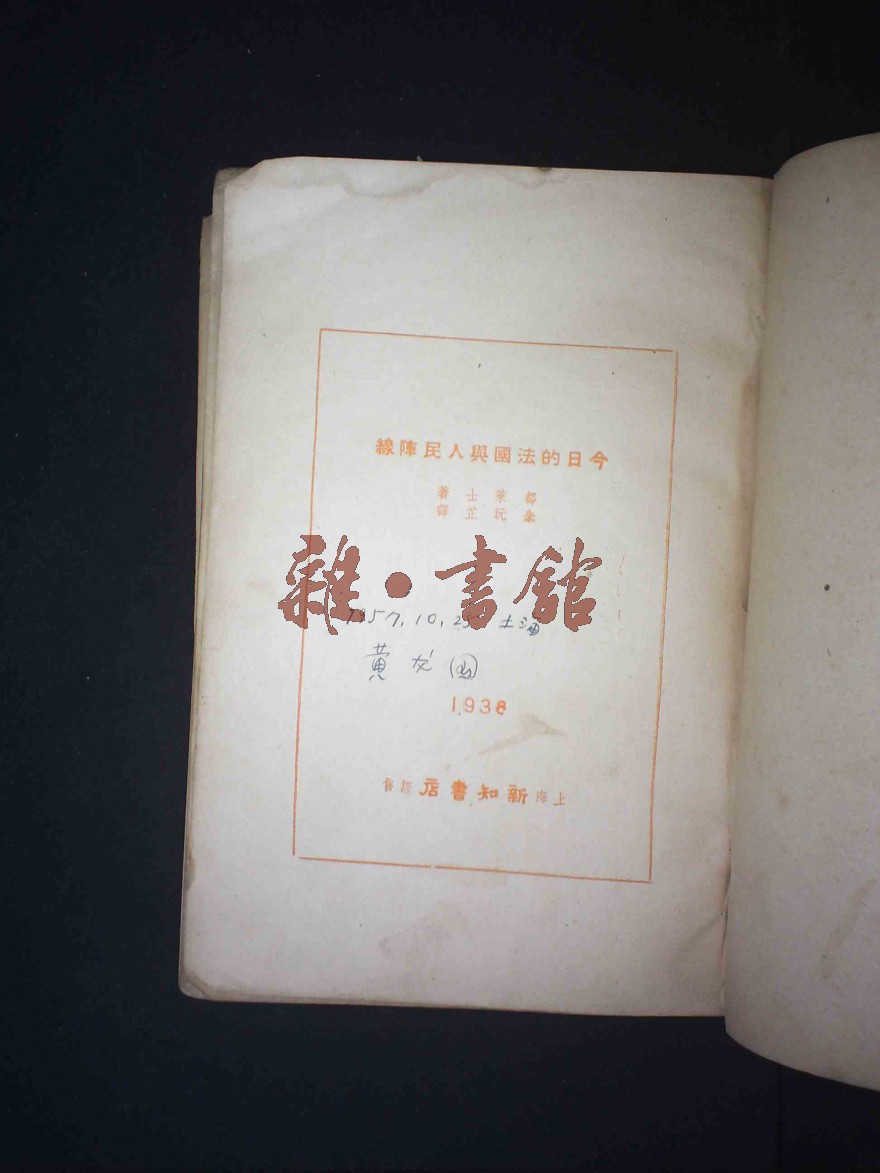 今日的法國與人民陣線
都萊士著
朱沅芷譯
雜·書館
1957.10.25 上海
黃
1938
上海新知書店經售